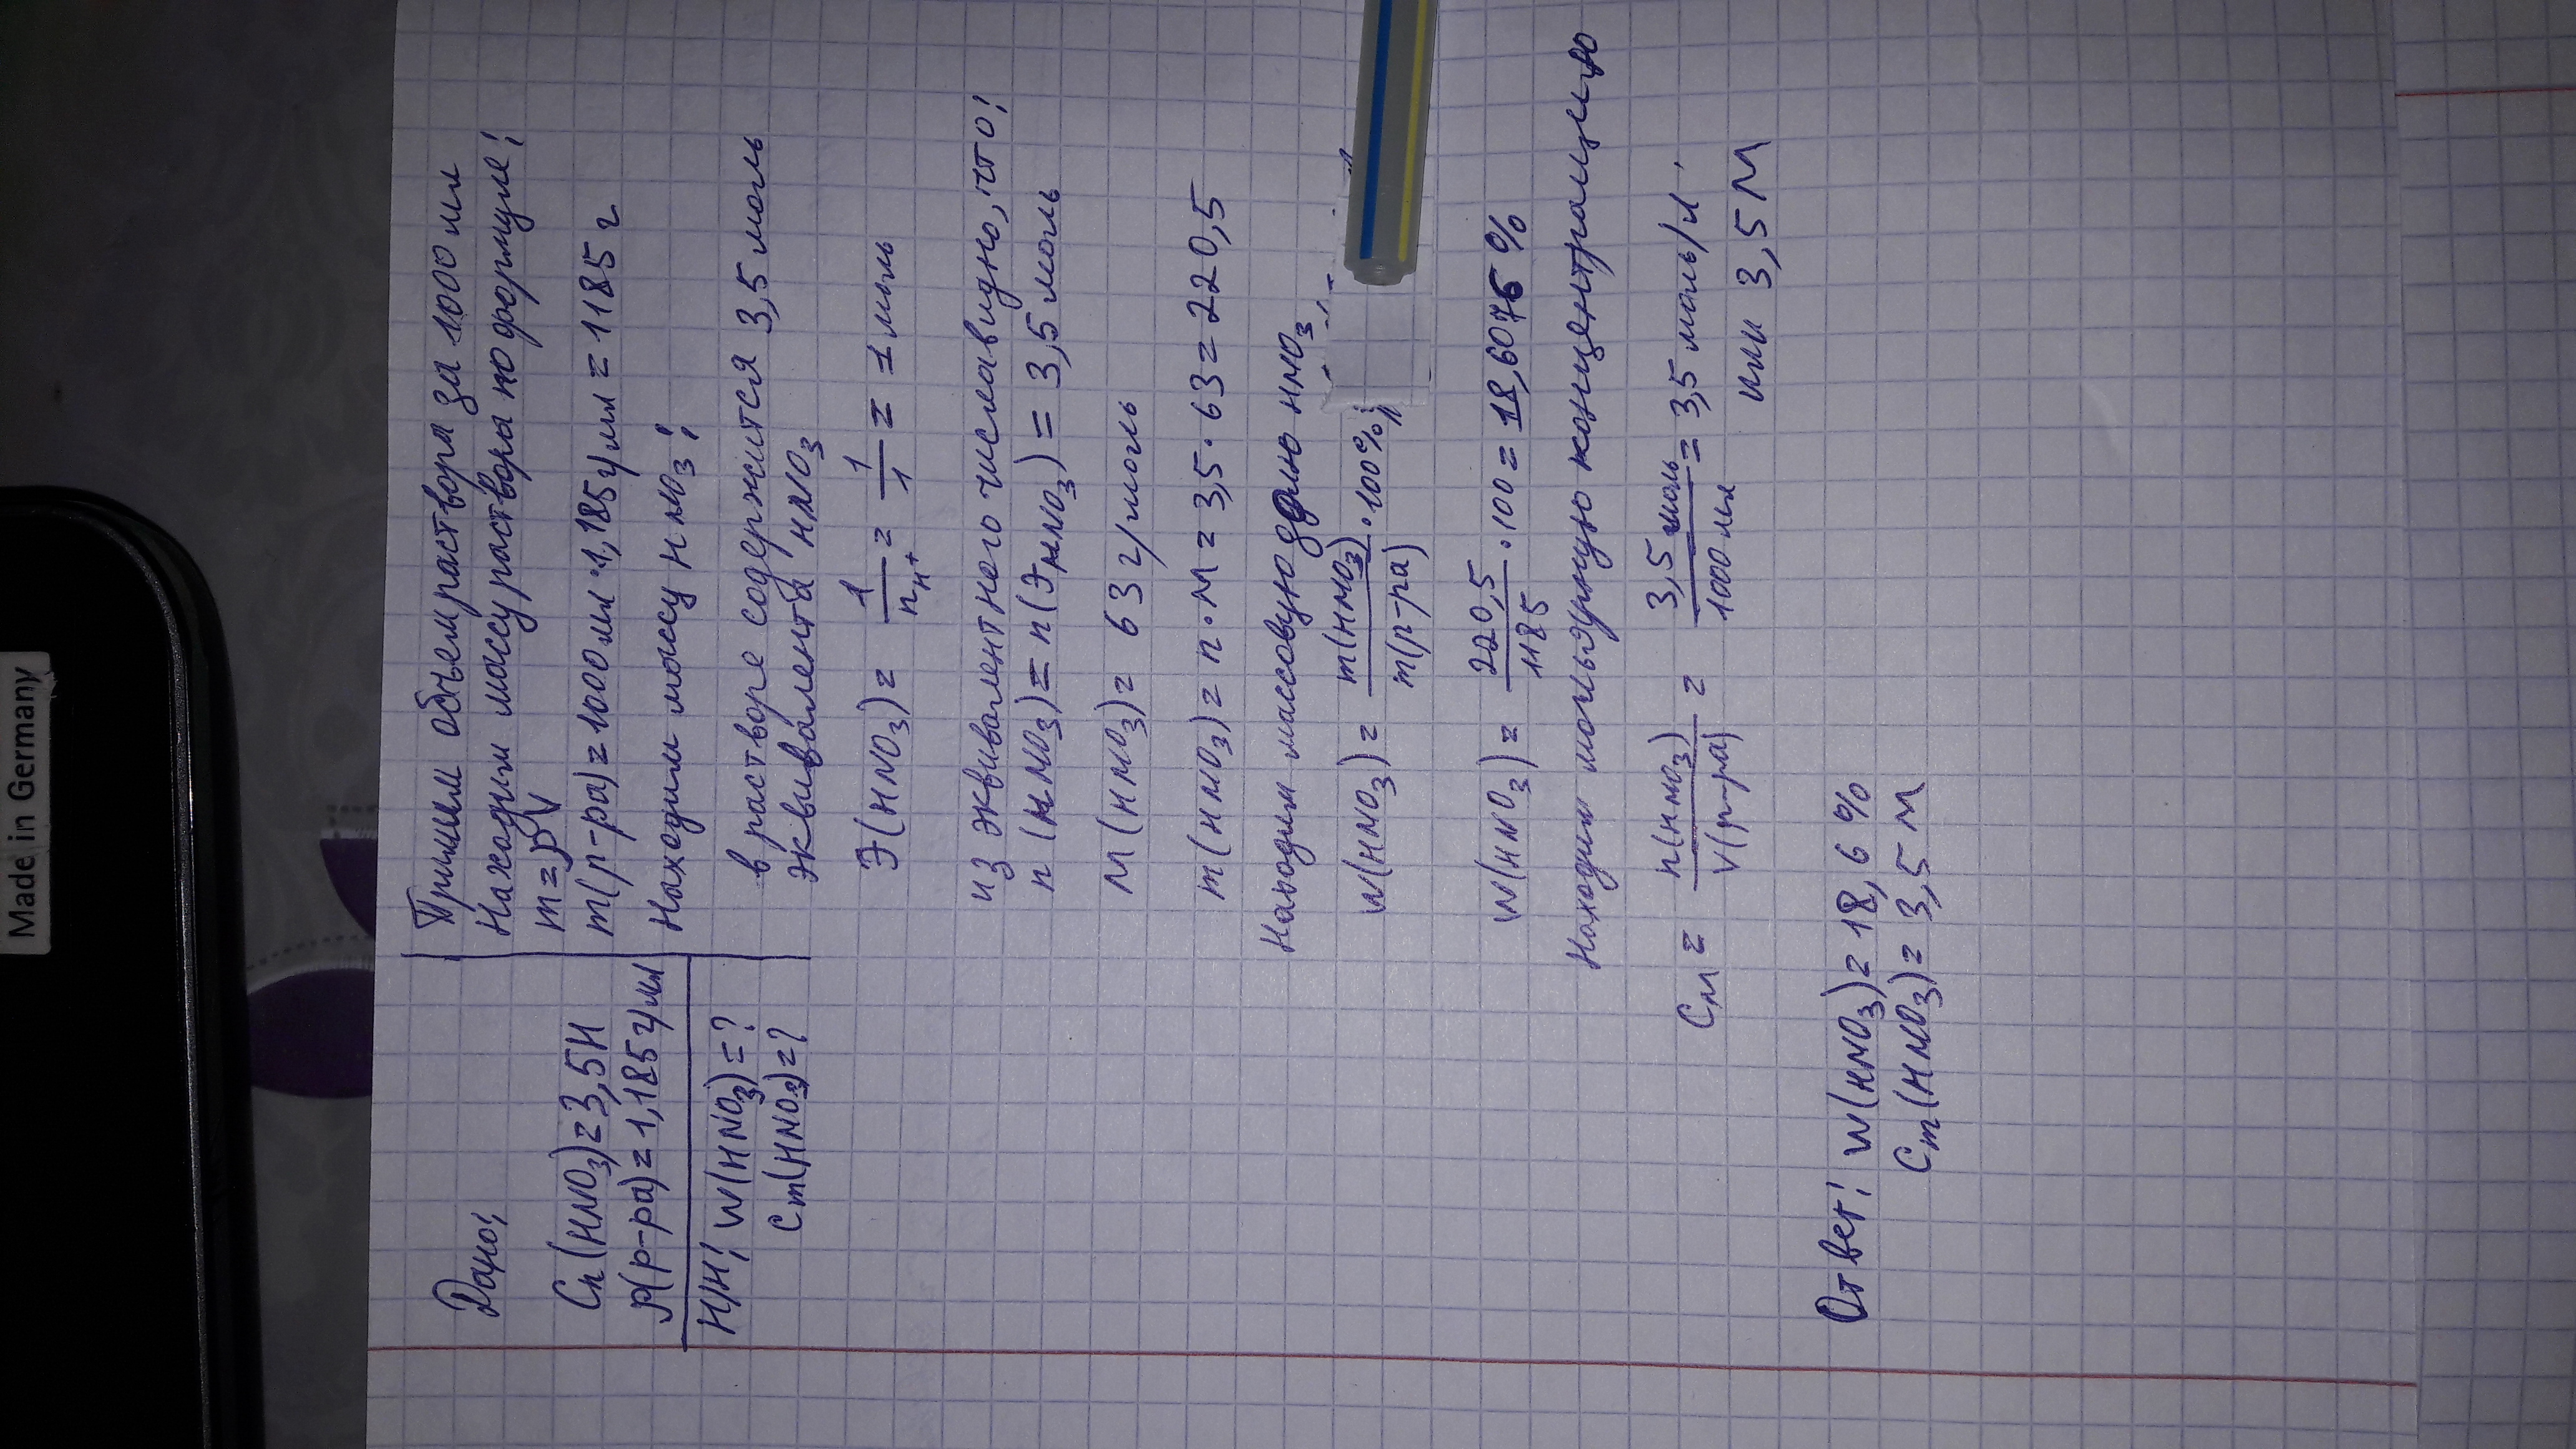 Made in Germany
Дано:
Cн(HNO3)=3,5Н
ρ(р-ра)=1,185г/мл
Н/Н: W(HNO3)=?
Cm(HNO3)=?
Примем объем раствора за 1000 мл
Находим массу раствора по формуле:
m=ρV
m(р-ра)=1000мл·1,185г/мл=1185г
Находим массу HNO3:
в растворе содержится 3,5 моль
эквивалента HNO3
Э(HNO3)= 1/nн+ = 1/1 = 1 моль
из эквивалентного числа видно, что:
n(HNO3)=n(ЭHNO3)=3,5 моль
M(HNO3)=63 г/моль
m(HNO3)=n·M=3,5·63=220,5
Находим массовую долю HNO3
W(HNO3)= m(HNO3)/m(р-ра) ·100%
W(HNO3)= 220,5/1185 ·100=18,6076%
Находим мольную концентрацию
CM= n(HNO3)/V(р-ра) = 3,5 моль/1000 мл =3,5 моль/л
или 3,5 М
Ответ: W(HNO3)=18,6%
Cm(HNO3)=3,5 М